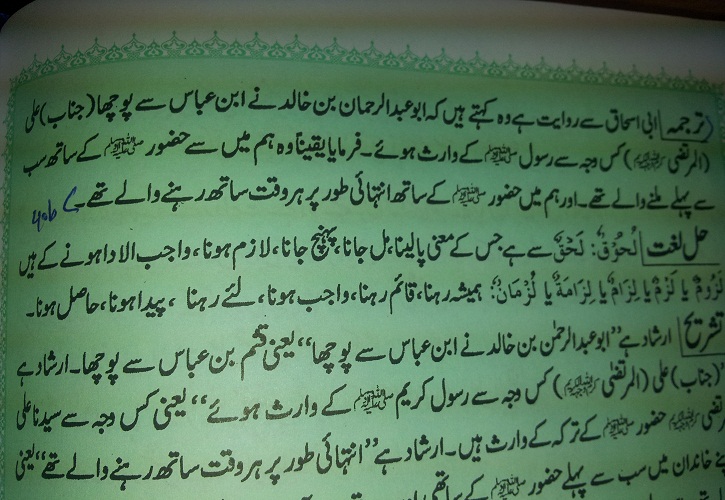 ترجمہ ابی اسحاق سے روایت ہے وہ کہتے ہیں کہ ابو عبدالرحمان بن خالد نے ابن عباس سے پوچھا (جناب) علی
(المرتضٰی) کس وجہ سے رسول ﷺ کے وارث ہوئے۔ فرمایا یقیناً وہ ہم میں سے حضور ﷺ کے ساتھ سب
سے پہلے ملنے والے تھے۔ اور ہم میں حضور ﷺ کے ساتھ انتہائی طور پر ہر وقت ساتھ رہنے والے تھے۔
حل لغت لُحُوْق: لَحْقٌ سے ہے جس کے معنی پالینا، مل جانا، پہنچ جانا، لازم ہونا، واجب الادا ہونے کے ہیں
لُزُومٌ یا لَزْمٌ یا لِزَامٌ یا لِزَامَةٌ یا لُزْمَانٌ: ہمیشہ رہنا، قائم رہنا، واجب ہونا، لئے رہنا ، پیدا ہونا، حاصل ہونا۔
تشریح ارشاد ہے ”ابو عبدالرحمٰن بن خالد نے ابن عباس سے پوچھا“ یعنی قثم بن عباس سے پوچھا۔ ارشاد ہے
”(جناب) علی (المرتضٰی) کس وجہ سے رسول کریم ﷺ کے وارث ہوئے“ یعنی کس وجہ سے سیدنا علی
مرتضٰی حضور ﷺ کے ترکہ کے وارث ہیں۔ ارشاد ہے ”انتہائی طور پر ہر وقت ساتھ رہنے والے تھے“ یعنی
خاندان میں سب سے پہلے حضور ﷺ کے ساتھی